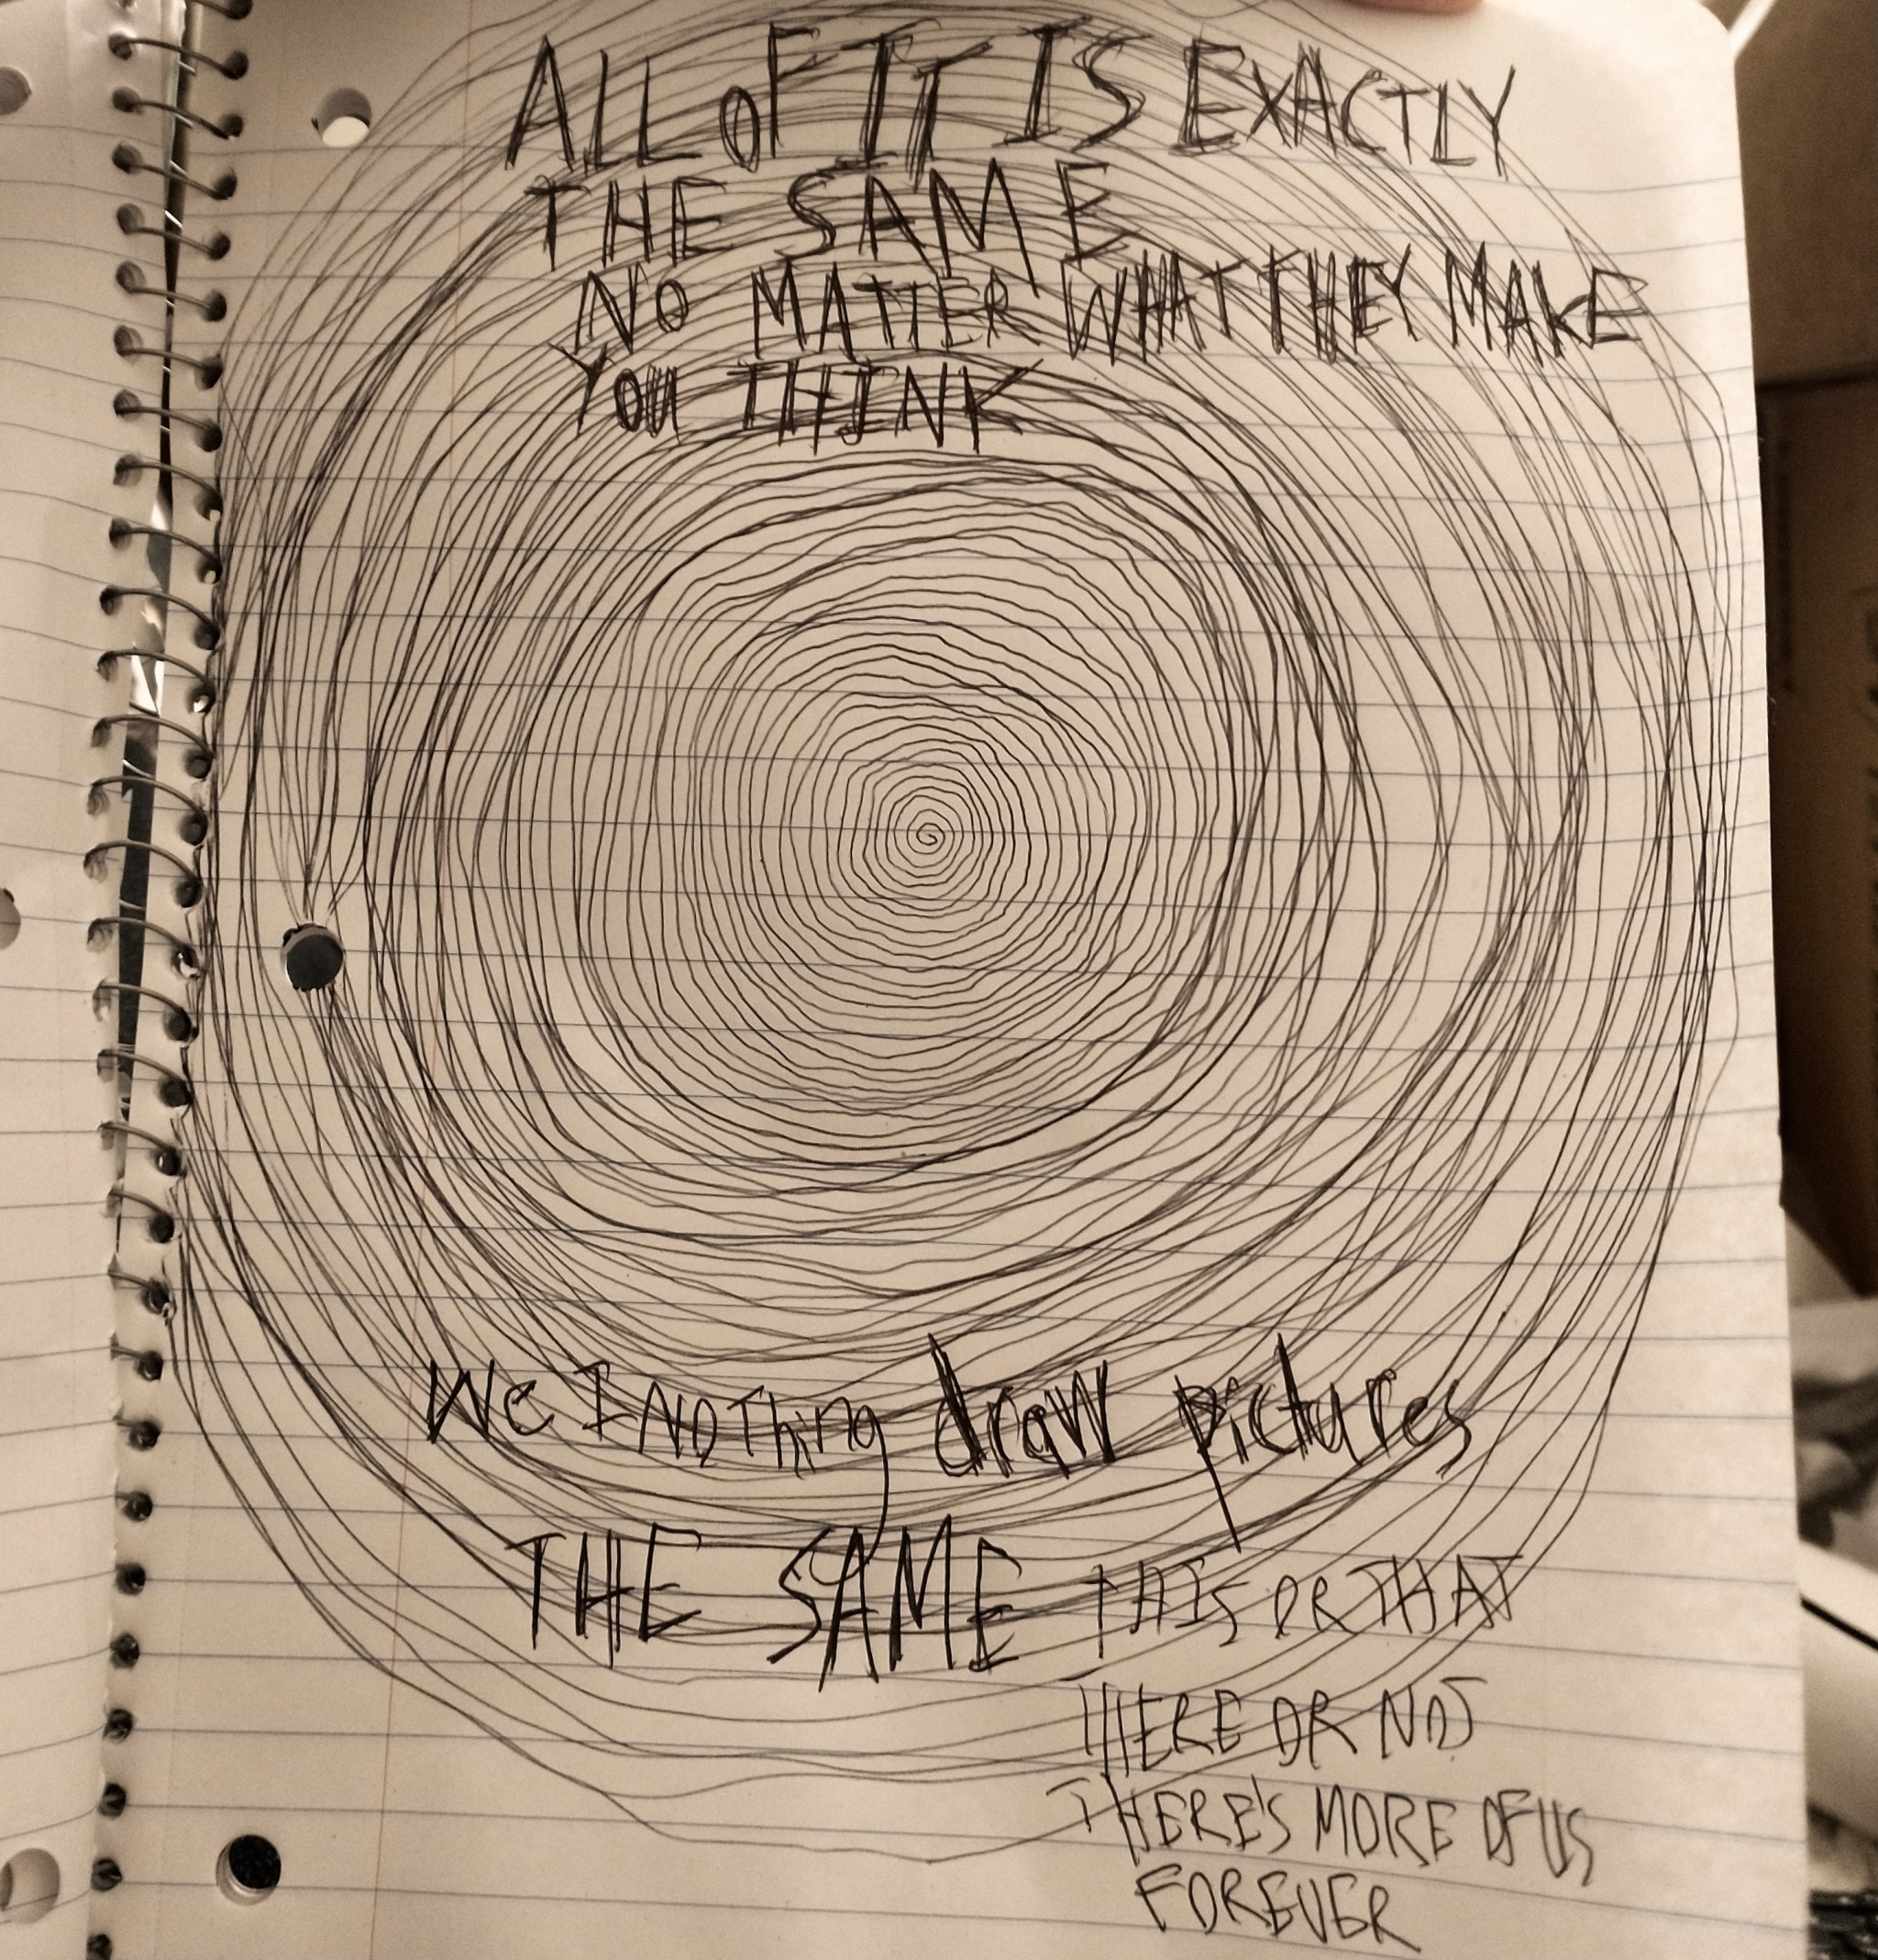 ALL OF IT IS EXACTLY
THE SAME
NO MATTER WHAT THEY MAKE
YOU THINK
We I NOThing draw pictures
THE SAME THIS OR THAT
HERE OR NOT
THERE'S MORE OF US
FOREVER